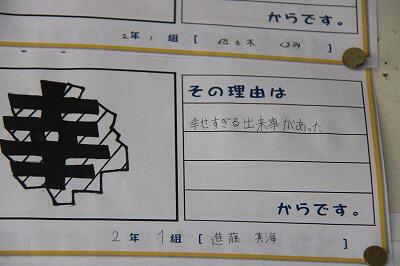 からです。
2年 1組 [ 佐々木 くるみ ]
幸
その理由は
幸せすぎる出来事があった
からです。
2年 1組 [ 進藤 美海 ]